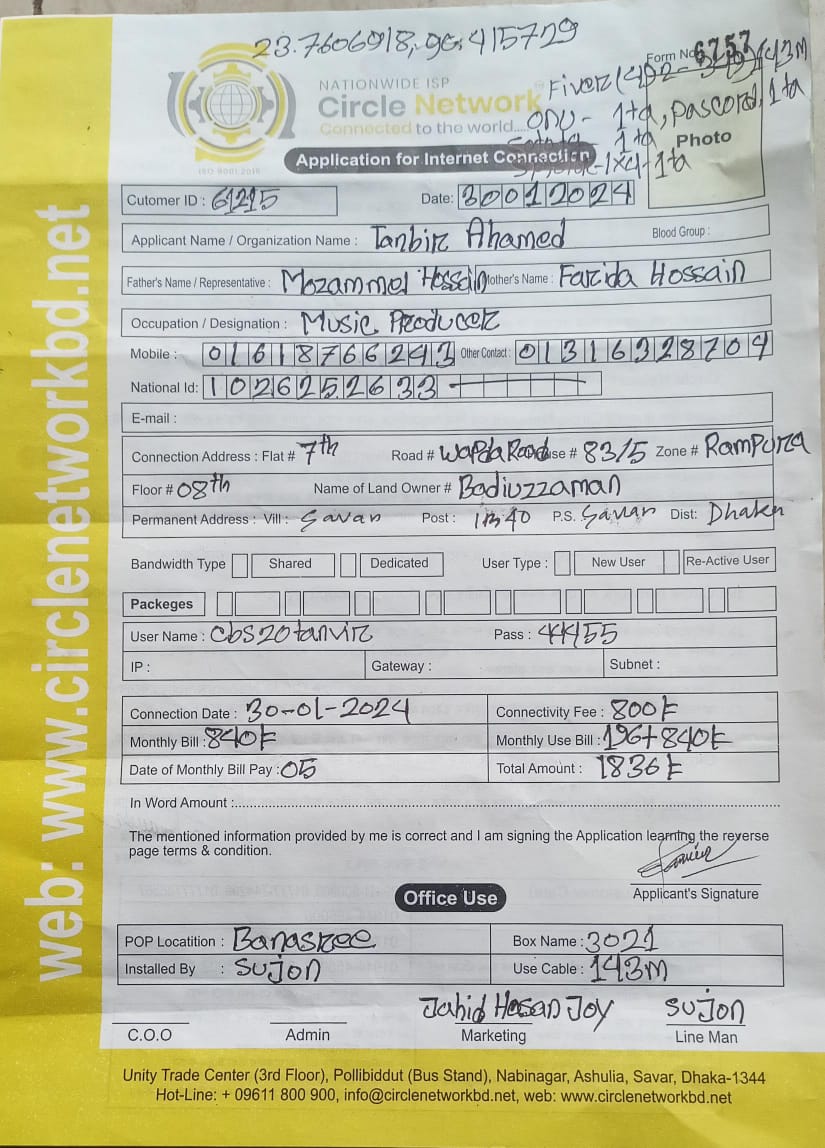 23.7606918, 90.415729
Form No 6757
Fiver
143M
NATIONWIDE ISP
Circle Network
Connected to the world....
ONU - 1ta, Pascord, 1ta
1ta
Photo
ISO 9001:2015
Application for Internet Connection
1x4-1ta
Cutomer ID : 61215 Date: 30012024
Applicant Name / Organization Name : Tanbir Ahamed Blood Group :
Father's Name / Representative : Mozammel Hossain Mother's Name : Farida Hossain
Occupation / Designation : Music Producer
Mobile : 01618766243 Other Contact : 01316328704
National Id: 1026252633
E-mail :
Connection Address : Flat # 7th Road # Wapda Road House # 83/5 Zone # Rampura
Floor # 08th Name of Land Owner # Badiuzzaman
Permanent Address : Vill : Savar Post : 1340 P.S. Savar Dist: Dhaka
Bandwidth Type Shared Dedicated User Type : New User Re-Active User
Packeges
User Name : cbs20tanvir Pass : 44155
IP : Gateway : Subnet :
Connection Date : 30-01-2024 Connectivity Fee : 800৳
Monthly Bill : 840৳ Monthly Use Bill : 196+840৳
Date of Monthly Bill Pay : 05 Total Amount : 1836৳
In Word Amount :
The mentioned information provided by me is correct and I am signing the Application learning the reverse
page terms & condition.
Applicant's Signature
Office Use
POP Locatition : Banasree Box Name : 3021
Installed By : Sujon Use Cable : 143m
Jahid Hasan Joy Sujon
C.O.O Admin Marketing Line Man
Unity Trade Center (3rd Floor), Pollibiddut (Bus Stand), Nabinagar, Ashulia, Savar, Dhaka-1344
Hot-Line: + 09611 800 900, info@circlenetworkbd.net, web: www.circlenetworkbd.net
web: www.circlenetworkbd.net